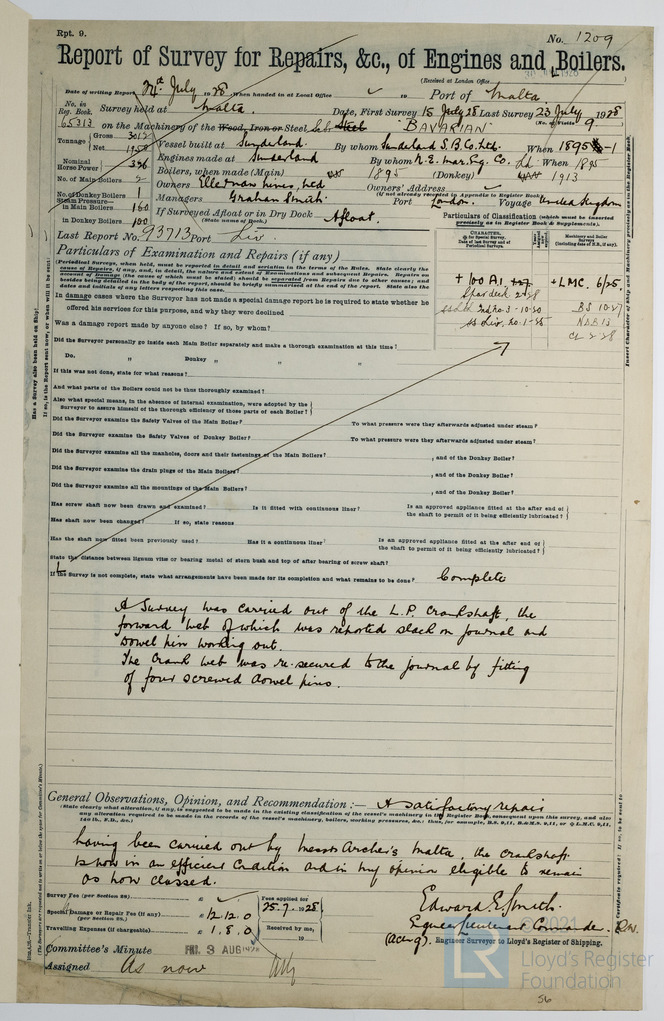 Rpt. 9.
No. 1209
Report of Survey for Repairs, &c., of Engines and Boilers.
(Received at London Office
Date of writing Report 24th July 1928 When handed in at Local Office 19 Port of Malta.
No. in Reg. Book. Survey held at Malta. Date, First Survey 18 July 28 Last Survey 23 July 1928
65313 on the Machinery of the Wood, Iron or Steel "BAVARIAN" (No. of Visits 9
Tonnage Gross 3012
Net
Vessel built at Sunderland. By whom Sunderland S.B. Co. Ltd. When 1895-1
Engines made at Sunderland By whom N.E. Mar. Eg. Co. Ld When 1895
Nominal Horse Power 396
Boilers, when made (Main) 1895 (Donkey) 1913
No. of Main Boilers 2
Owners Ellerman Lines, Ltd Owners' Address
(if not already recorded in Appendix to Register Book)
No. of Donkey Boilers 1
Managers Graham Smith. Port London. Voyage United Kingdom
Steam Pressure in Main Boilers 160
in Donkey Boilers 100
If Surveyed Afloat or in Dry Dock Afloat.
(State name of Dock.)
Particulars of Classification (which must be inserted precisely as in Register Book & Supplements).
Last Report No. 93713 Port Liv
Particulars of Examination and Repairs (if any)
(Periodical Surveys, when held, must be reported in detail and seriatim in the terms of the Rules. State clearly the
+ 100 A1. + LMC. 6/25.
BS 10.27
NDB 13
CL 2.28
In damage cases where the Surveyor has not made a special damage report he is required to state whether he
offered his services for this purpose, and why they were declined
Was a damage report made by anyone else? If so, by whom?
Did the Surveyor personally go inside each Main Boiler separately and make a thorough examination at this time?
Do. " Donkey " " "
If this was not done, state for what reasons?
And what parts of the Boilers could not be thus thoroughly examined?
Also what special means, in the absence of internal examination, were adopted by the
Surveyor to assure himself of the thorough efficiency of those parts of each Boiler?
Did the Surveyor examine the Safety Valves of the Main Boiler? To what pressure were they afterwards adjusted under steam?
Did the Surveyor examine the Safety Valves of Donkey Boiler? To what pressure were they afterwards adjusted under steam?
Did the Surveyor examine all the manholes, doors and their fastenings of the Main Boilers? , and of the Donkey Boiler?
Did the Surveyor examine the drain plugs of the Main Boilers? , and of the Donkey Boiler?
Did the Surveyor examine all the mountings of the Main Boilers? , and of the Donkey Boiler?
Has screw shaft now been drawn and examined? Is it fitted with continuous liner? Is an approved appliance fitted at the after end of
the shaft to permit of it being efficiently lubricated?
Has shaft now been changed? If so, state reasons
Has the shaft now fitted been previously used? Has it a continuous liner? Is an approved appliance fitted at the after end of
the shaft to permit of it being efficiently lubricated?
State the distance between lignum vitæ or bearing metal of stern bush and top of after bearing of screw shaft?
If the Survey is not complete, state what arrangements have been made for its completion and what remains to be done? Complete
A Survey was carried out of the L.P. Crankshaft, the
forward web of which was reported slack on journal and
Dowel pin working out.
The Crank web was re-secured to the journal by fitting
of four screwed dowel pins.
General Observations, Opinion, and Recommendation:— A satisfactory repair
(State clearly what alteration, if any, is suggested to be made in the existing classification of the vessel's machinery in the Register Book, consequent upon this survey, and also
having been carried out by Messrs Archer's Malta, the crankshaft
is now in an efficient condition and in my opinion eligible to remain
as now classed.
Survey Fee (per Section 29) £
Special Damage or Repair Fee (if any) (per Section 29.) £12.12.0
Travelling Expenses (if chargeable) £ 1.8.0
Fees applied for 25.7.1928
Received by me, 19
Edward E. Smith.
Engineer Lieutenant Commander. R.N.
(acting). Engineer Surveyor to Lloyd's Register of Shipping.
Committee's Minute FRI. 3 AUG 1928
Assigned As now
© 2021
LR Lloyd's Register
Foundation
56